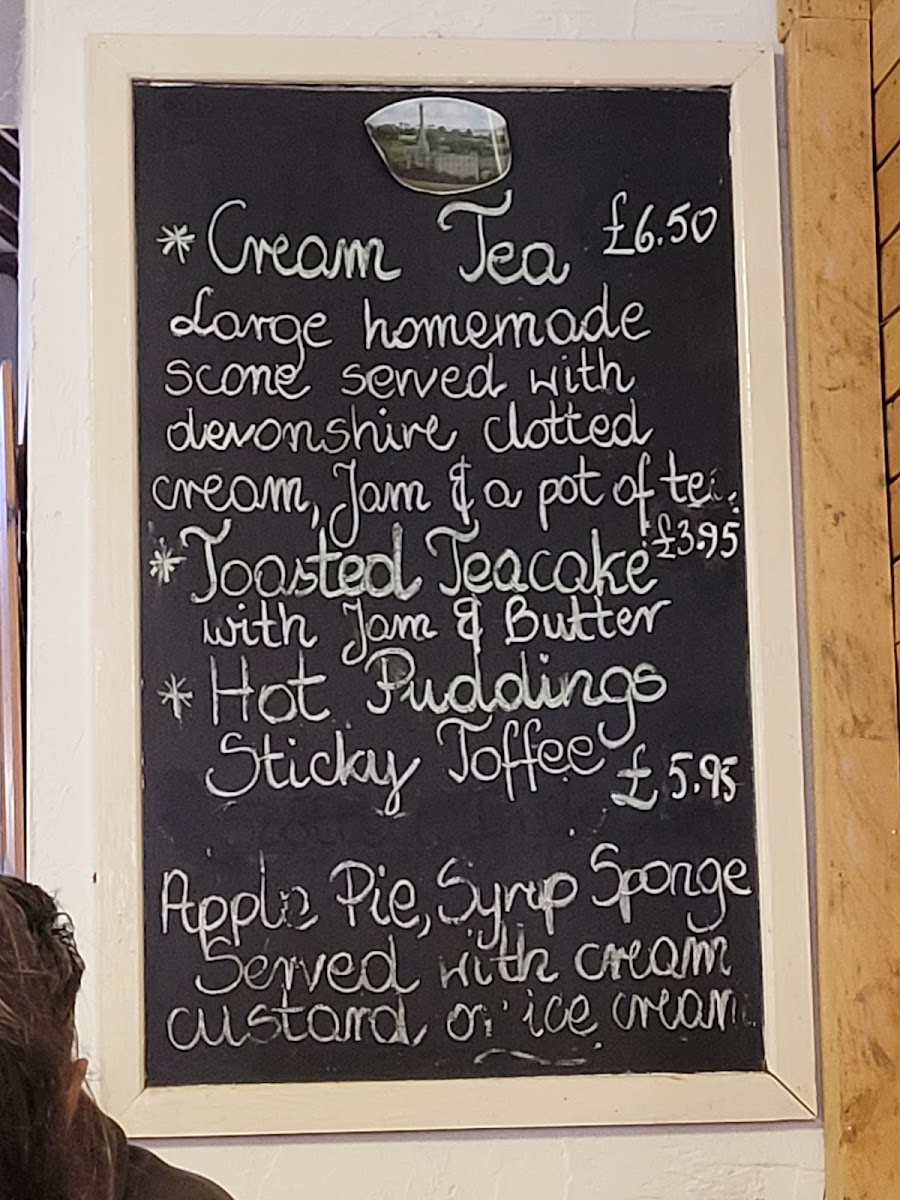 * Cream Tea £6.50
Large homemade
scone served with
devonshire clotted
cream, Jam & a pot of tea.
£3.95
* Toasted Teacake
with Jam & Butter
* Hot Puddings
Sticky Toffee £5.95
Apple Pie, Syrup Sponge
Served with cream
custard or ice cream